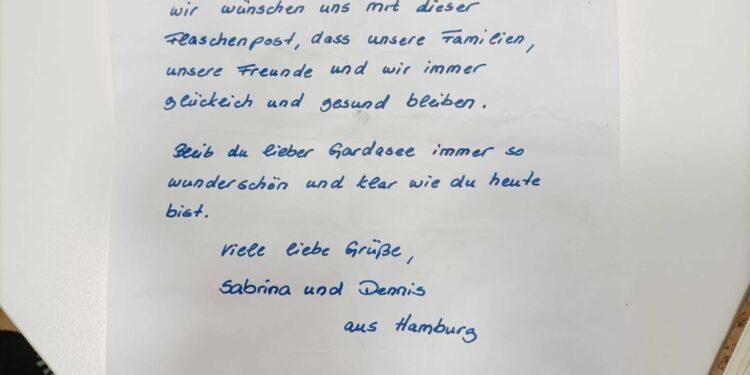 wir wünschen uns mit dieser
Flaschenpost, dass unsere Familien,
unsere Freunde und wir immer
glücklich und gesund bleiben.
Bleib du lieber Gardasee immer so
wunderschön und klar wie du heute
bist.
Viele liebe Grüße,
Sabrina und Dennis
aus Hamburg